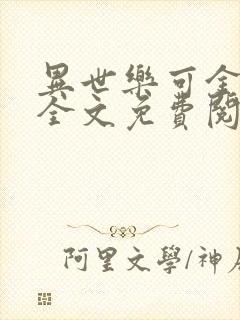 異世樂可全
全文免費閱
阿里文學/神居